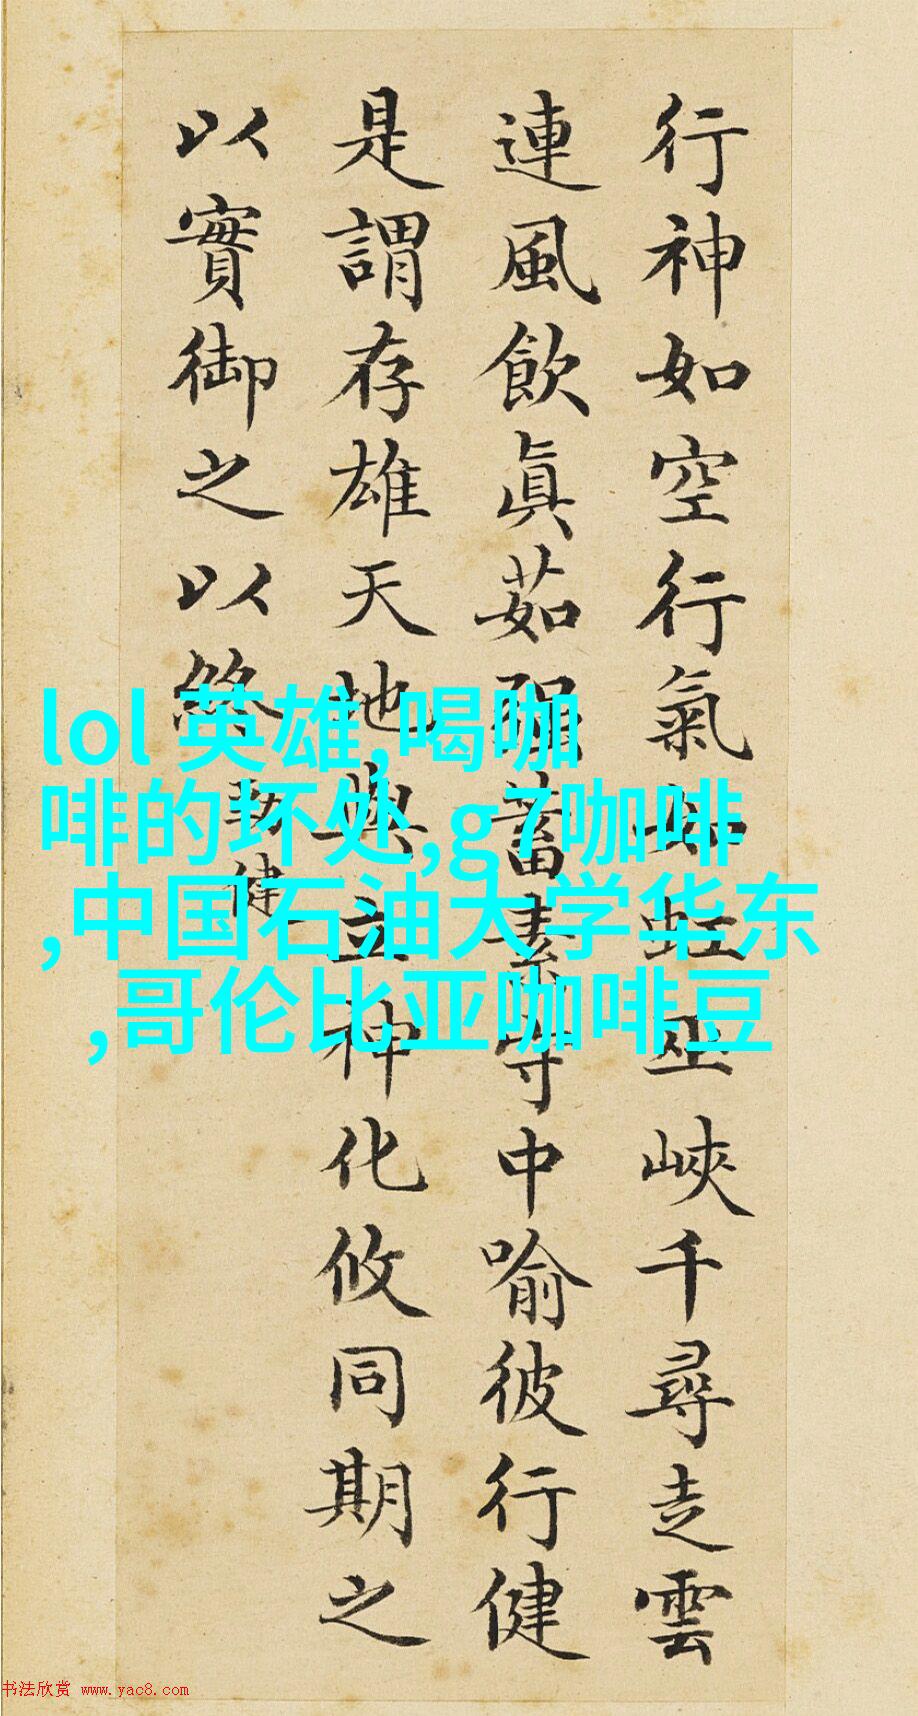 行神如空行氣如虹巫峽千尋走雲
連風飲眞茹强蓄素守中喻彼行健
是謂存雄天地與立神化攸同期之
以實御之以終
勁健
lol 英雄,喝咖
啡的坏处,g7咖啡
,中国石油大学华东
,哥伦比亚咖啡豆
书法欣赏 www.yac8.com